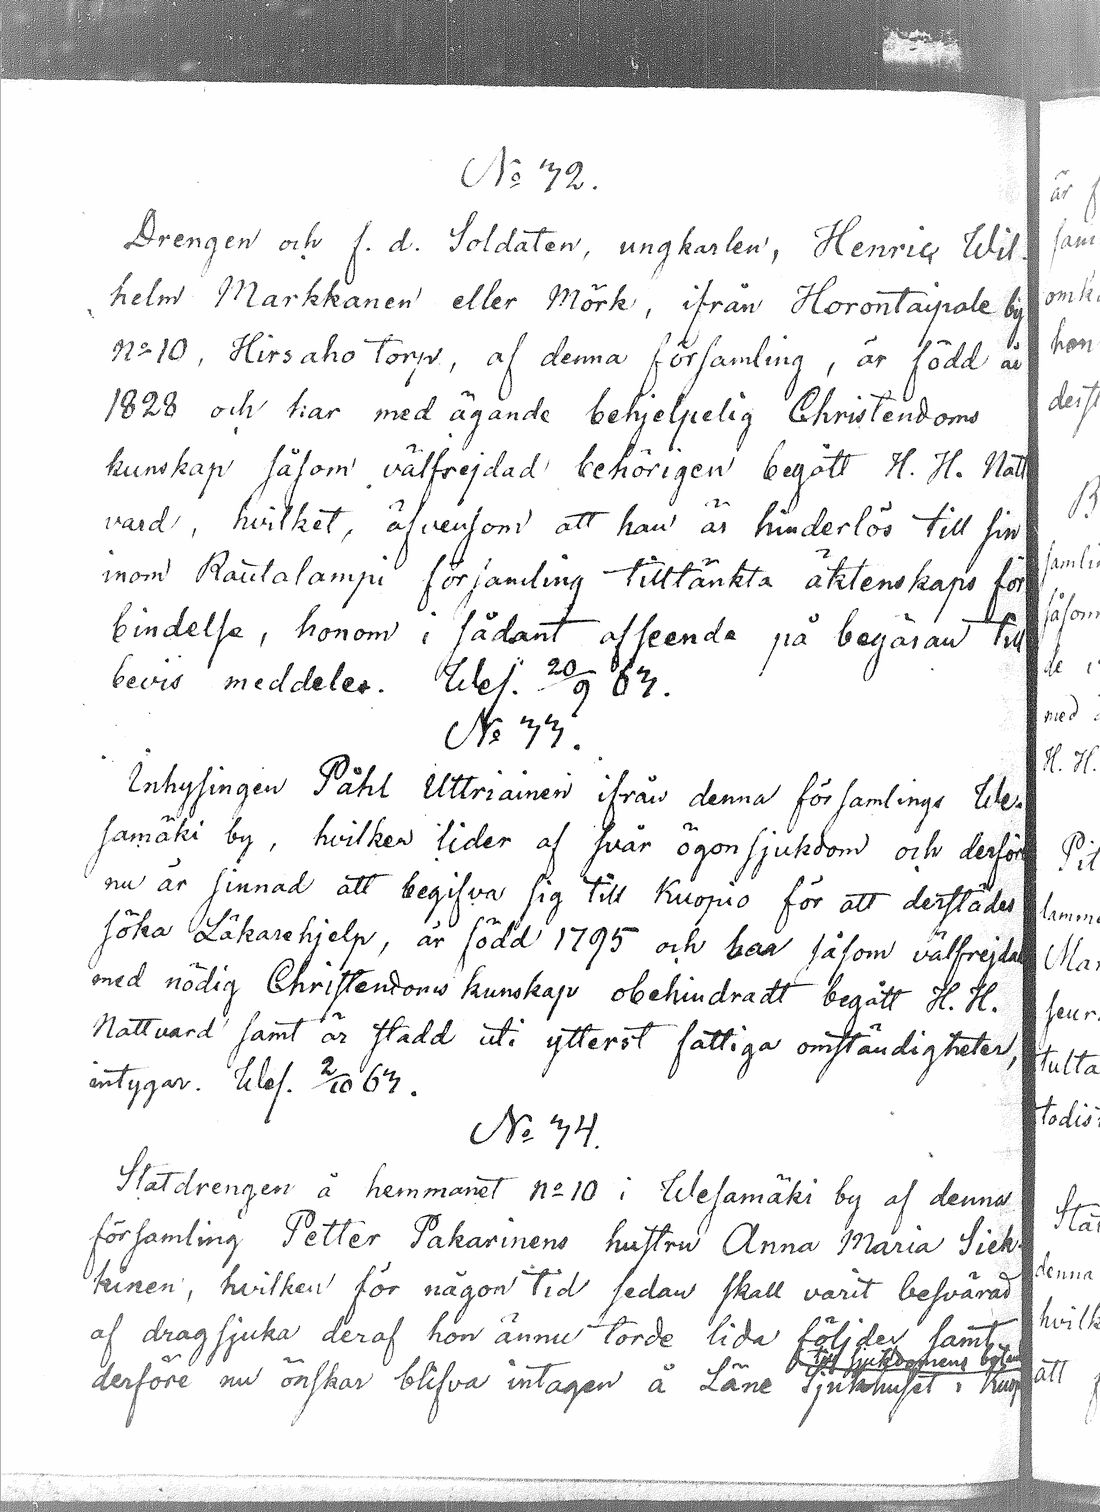 No 32.
Drengen och f. d. Soldaten, ungkarlen, Henric Wil-
helm Markkanen eller Mörk, ifrån Horontaipale by
no 10, Hirsaho torp, af denna församling, är född år
1828 och har med ägande behjelpelig Christendoms
kunskap såsom välfrejdad behörigen begått H. H. Natt
vard, hvilket, äfvensom att han är hinderlös till sin
inom Rautalampi församling tilltänkta äktenskaps för
bindelse, honom i sådant afseende på begäran till
bevis meddelas. Wes. 20/9 63.
No 33.
Inhysingen Påhl Uttriainen ifrån denna församlings We-
samäki by, hvilken lider af svår ögonsjukdom och derför
nu är sinnad att begifva sig till Kuopio för att derstädes
söka Läkarehjelp, är född 1795 och har såsom välfrejdad
med nödig Christendoms kunskap obehindradt begått H. H.
Nattvard samt är stadd uti ytterst fattiga omständigheter,
intygar. Wes. 2/10 63.
No 34.
Statdrengen å hemmanet no 10 i Wesamäki by af denna
församling Petter Pakarinens hustru Anna Maria Siek-
kinen, hvilken för någon tid sedan skall varit besvärad
af dragsjuka deraf hon ännu torde lida följder samt
till sjukdomens
derföre nu önskar blifva intagen å Läne Sjukhuset i Kuop
är f
sam
omk
han
derf
B
samli
såsom
de
med
H. H.
Pet
lamm
Mar
seur
tulta
todis
Stat
denna
hvilk
att